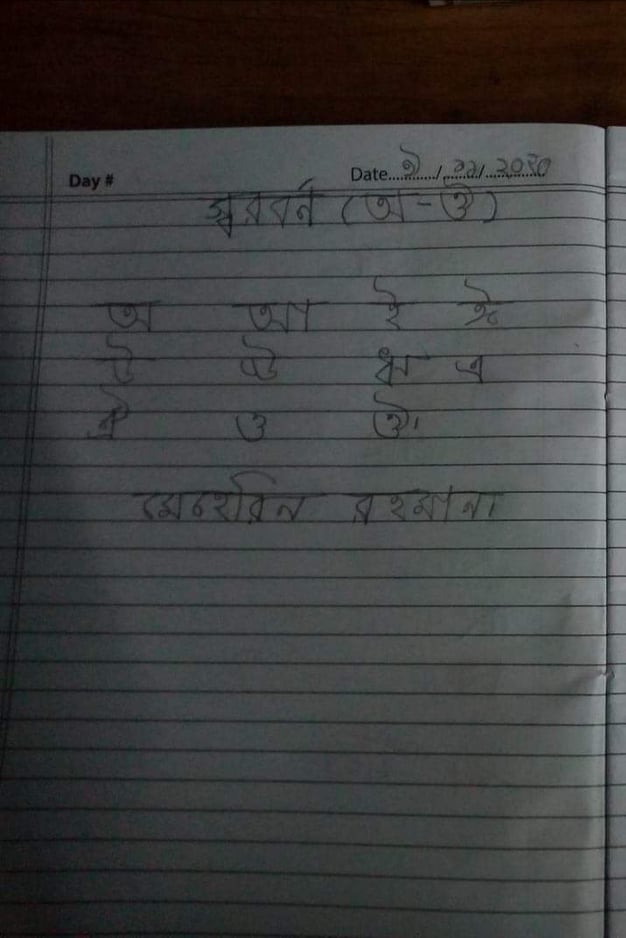 Day #
Date....../১১/২০২০
স্বরবর্ন (অ-ঔ)
অ আ ই ঈ
উ ঊ ঋ এ
ঐ ও ঔ।
মেহেরিন রহমান।